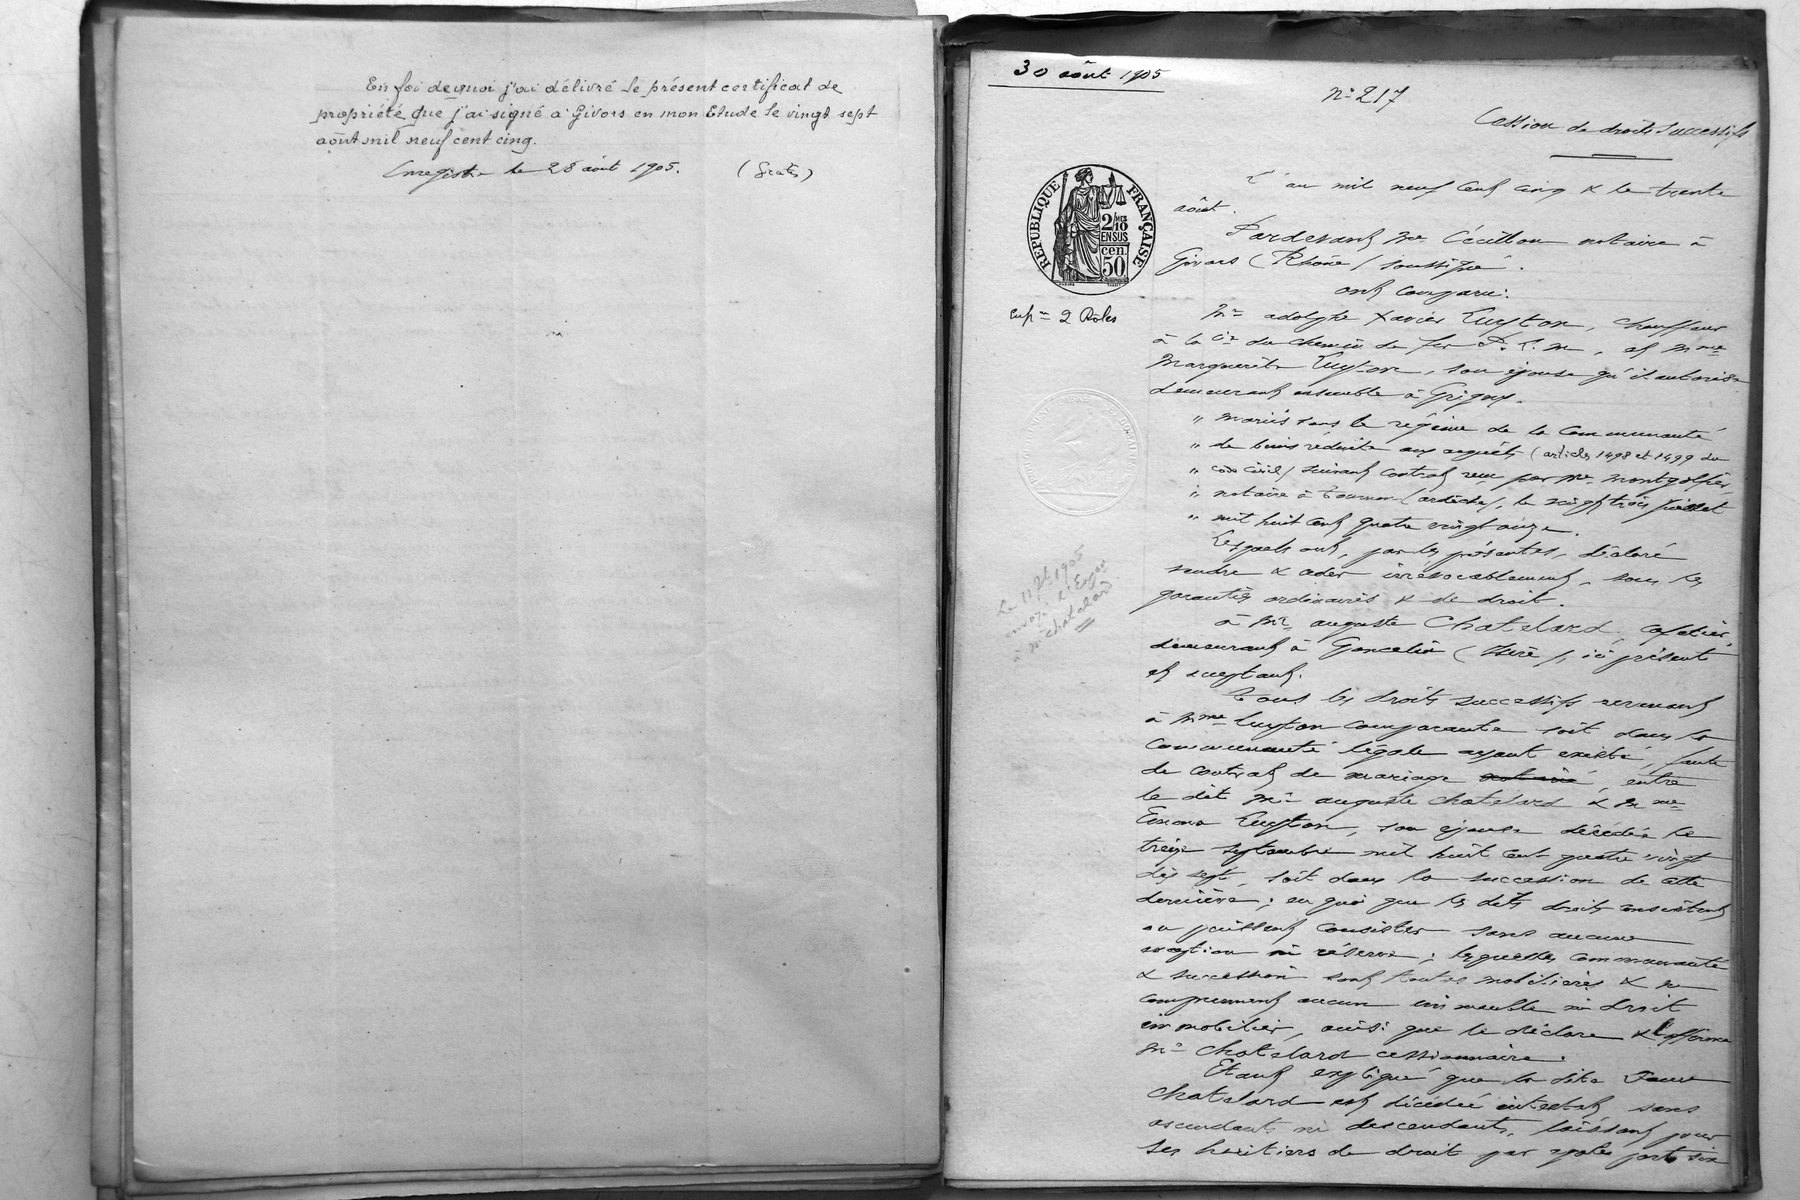 En foi de quoi j'ai délivré le présent certificat de
propriété que j'ai signé à Givors en mon Etude le vingt sept
août mil neuf cent cinq.
Enregistré le 28 août 1905. (Gratis)
30 août 1905
N° 217
Cession de droits successifs
L'an mil neuf cent cinq & le trente
août.
Pardevant Me Cécillon notaire à
Givors (Rhône) soussigné.
ont comparu:
REPUBLIQUE FRANÇAISE
2/10 EN SUS
50 cen
Exp on 2 Rôles
Mr Adolphe Xavier Luyton, chauffeur
à la Cie du chemin de fer P. L. M, et Mme
Marguerite Luyton, son épouse qu'il autorise
demeurant ensemble à Grigny.
" mariés sous le régime de la communauté
" de biens réduite aux acquêts (articles 1498 et 1499 du
" code civil) suivant contrat reçu par Me Montgolfier,
" notaire à Tournon (Ardèche), le vingt trois juillet
" mil huit cent quatre vingt onze.
Lesquels ont, par les présentes, déclaré
vendre & céder irrévocablement, sous les
garanties ordinaires & de droit.
Le 11 1905
envoyé l'Exp on
à Mr Chatelard
à Mr Auguste Chatelard,
demeurant à Goncelin (Isère), ici présent
et acceptant.
Tous les droits successifs revenant
à Mme Luyton comparante soit dans la
communauté légale ayant existé, faute
de contrat de mariage, entre
le dit Mr Auguste Chatelard & Mme
Emma Luyton, son épouse décédée le
treize septembre mil huit cent quatre vingt
dix sept, soit dans la succession de cette
dernière; en quoi que les dits droits consistent
ou puissent consister sans aucune
exception ni réserve; lesquelles communauté
& succession sont toutes mobilières & ne
comprennent aucun immeuble ni droit
immobilier, ainsi que le déclare & l'affirme
Mr Chatelard cessionnaire.
Etant expliqué que la dite Dame
Chatelard est décédée intestat, sans
ascendants ni descendants, laissant pour
ses héritiers de droit par égales parts six